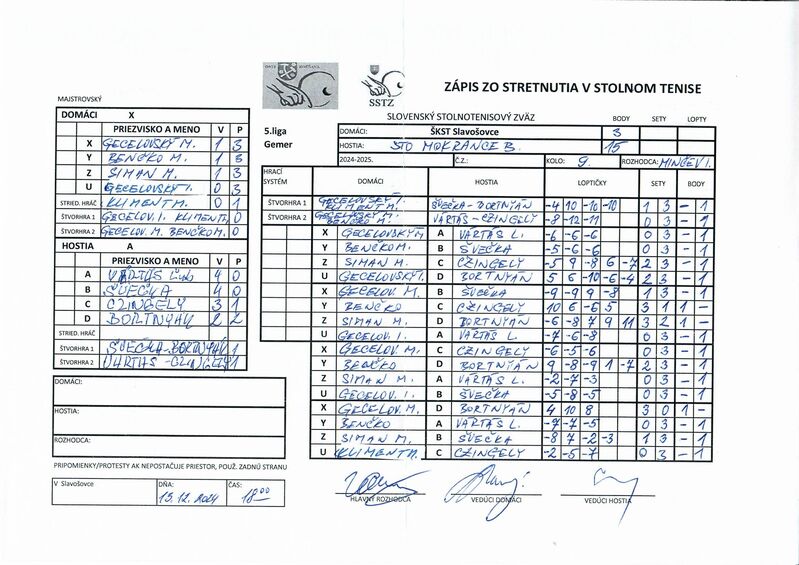 ZÁPIS ZO STRETNUTIA V STOLNOM TENISE
SSTZ
SLOVENSKÝ STOLNOTENISOVÝ ZVÄZ
BODY SETY LOPTY
MAJSTROVSKÝ
DOMÁCI X
PRIEZVISKO A MENO V P
X GECELOVSKÝ M. 1 3
Y BENČKO M. 1 3
Z SIMAN M. 1 3
U GECELOVSKÝ I. 0 3
STRIED. HRÁČ KLIMENT M. 0 1
ŠTVORHRA 1 GECELOV. I. KLIMENT M. 0 1
ŠTVORHRA 2 GECELOV. M. BENČKO M. 0 1
HOSTIA A
PRIEZVISKO A MENO V P
A VARTÁS 4 0
B ŠVEČKA 4 0
C CZINGELY 3 1
D BORTNYÁK 2 2
STRIED. HRÁČ
ŠTVORHRA 1 ŠVEČKA-BORTNYÁN 1
ŠTVORHRA 2 VARTÁS-CZINGELY 1
DOMÁCI:
HOSTIA:
ROZHODCA:
PRIPOMIENKY/PROTESTY AK NEPOSTAČUJE PRIESTOR, POUŽ. ZADNÚ STRANU
V Slavošovce DŇA: 15.12.2024 ČAS: 18 00
5.liga
Gemer
DOMÁCI: ŠKST Slavošovce 3
HOSTIA: STO MOKRANCE B. 15
2024-2025. Č.Z.: KOLO: 9. ROZHODCA: MINČEV I.
HRACÍ SYSTÉM DOMÁCI HOSTIA LOPTIČKY SETY BODY
ŠTVORHRA 1 GECELOVSKÝ I. KLIMENT M. ŠVEČKA-BORTNYÁN -4 10 -10 -10 1 3 - 1
ŠTVORHRA 2 GECELOVSKÝ M. BENČKO M. VARTÁS-CZINGELY -8 -12 -11 0 3 - 1
X GECELOVSKÝ M A VARTÁS L. -6 -6 -6 0 3 - 1
Y BENČKO M. B ŠVEČKA -5 -6 -6 0 3 - 1
Z SIMAN M. C CZINGELY -5 9 -8 6 -7 2 3 - 1
U GECELOVSKÝ I. D BORTNYÁN 5 6 -10 -6 -4 2 3 - 1
X GECELOV. M. B ŠVEČKA -9 -9 9 -8 1 3 - 1
Y BENČKO C CZINGELY 10 6 -6 5 3 1 1 -
Z SIMAN M. D BORTNYÁN -6 -8 7 9 11 3 2 1 -
U GECELOV. I. A VARTÁS L. -7 -6 -8 0 3 - 1
X GECELOV. M C CZINGELY -6 -5 -6 0 3 - 1
Y BENČKO D BORTNYÁN 9 -8 -9 1 -7 2 3 - 1
Z SIMAN M. A VARTÁS L. -2 -7 -3 0 3 - 1
U GECELOV. I. B ŠVEČKA -5 -8 -5 0 3 - 1
X GECELOV. M. D BORTNYÁN 4 10 8 3 0 1 -
Y BENČKO A VARTÁS L. -7 -7 -5 0 3 - 1
Z SIMAN M. B ŠVEČKA -8 7 -2 -3 1 3 - 1
U KLIMENT M. C CZINGELY -2 -5 -7 0 3 - 1
HLAVNÝ ROZHODCA VEDÚCI DOMÁCI VEDÚCI HOSTIA